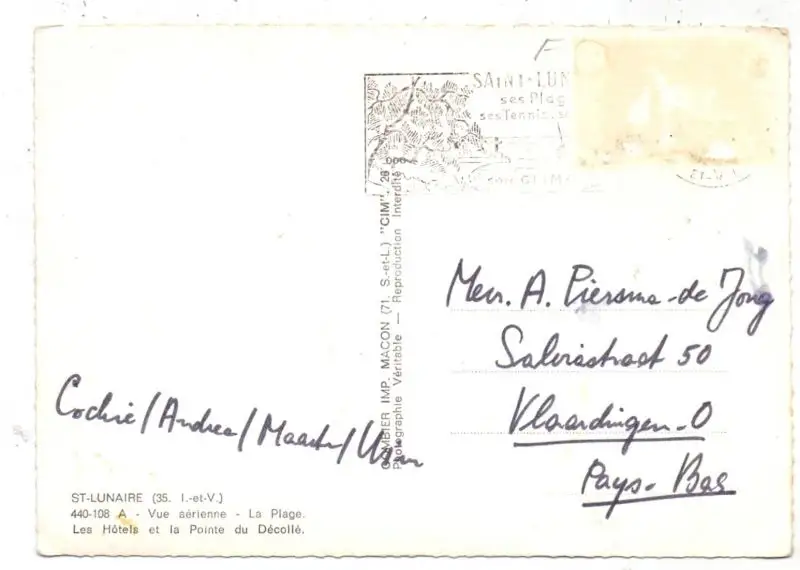 F
SAINT-LUN
ses Plag
ses Tennis
COMBIER IMP. MACON (71. S.-et-L.) "CIM".
Photographie Véritable — Reproduction Interdite
Mevr. A. Piersma-de Jong
50
Vlaardingen-O
Pays-Bas
Cockie/Andrea/Maarten/Wim
ST-LUNAIRE (35. I.-et-V.)
440-108 A - Vue aérienne - La Plage.
Les Hôtels et la Pointe du Décollé.